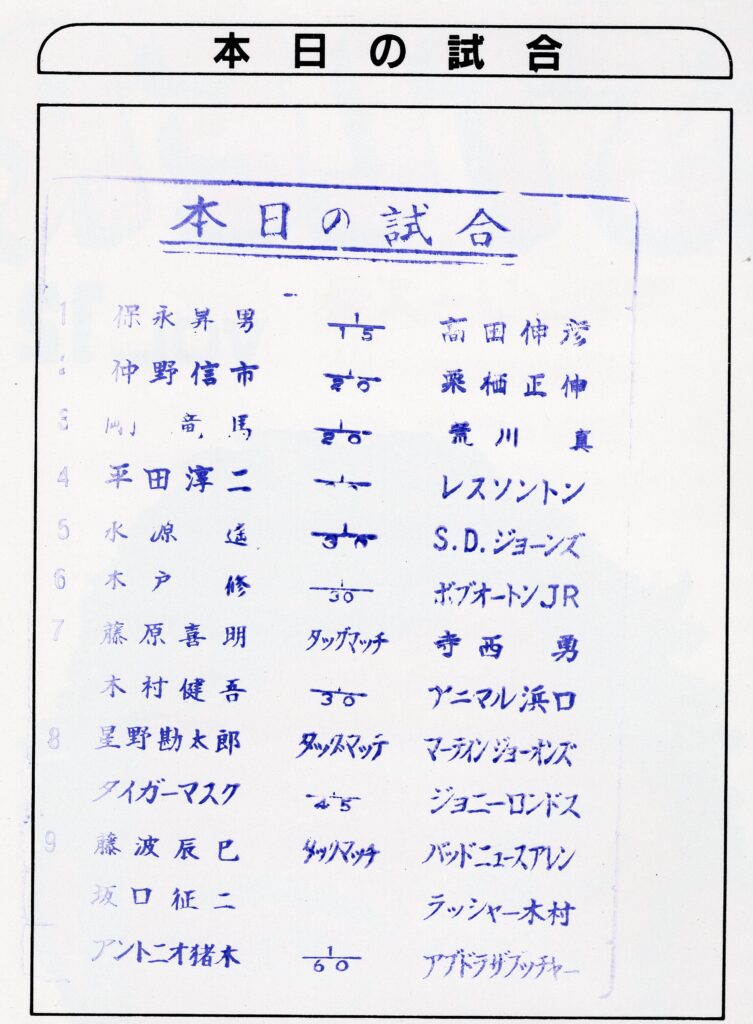 本日の試合
本日の試合
1 保永昇男 1/15 高田伸彦
2 仲野信市 1/20 栗栖正伸
3 剛竜馬 1/20 荒川真
4 平田淳二 レスソントン
5 水原遥 S.D.ジョーンズ
6 木戸修 1/30 ボブオートンJR
7 藤原喜明 タッグマッチ 寺西勇
木村健吾 1/30 アニマル浜口
8 星野勘太郎 タッグマッチ マーティンジョーンズ
タイガーマスク 1/45 ジョニーロンドス
9 藤波辰巳 タッグマッチ バッドニュースアレン
坂口征二 ラッシャー木村
アントニオ猪木 1/60 アブドラザブッチャー